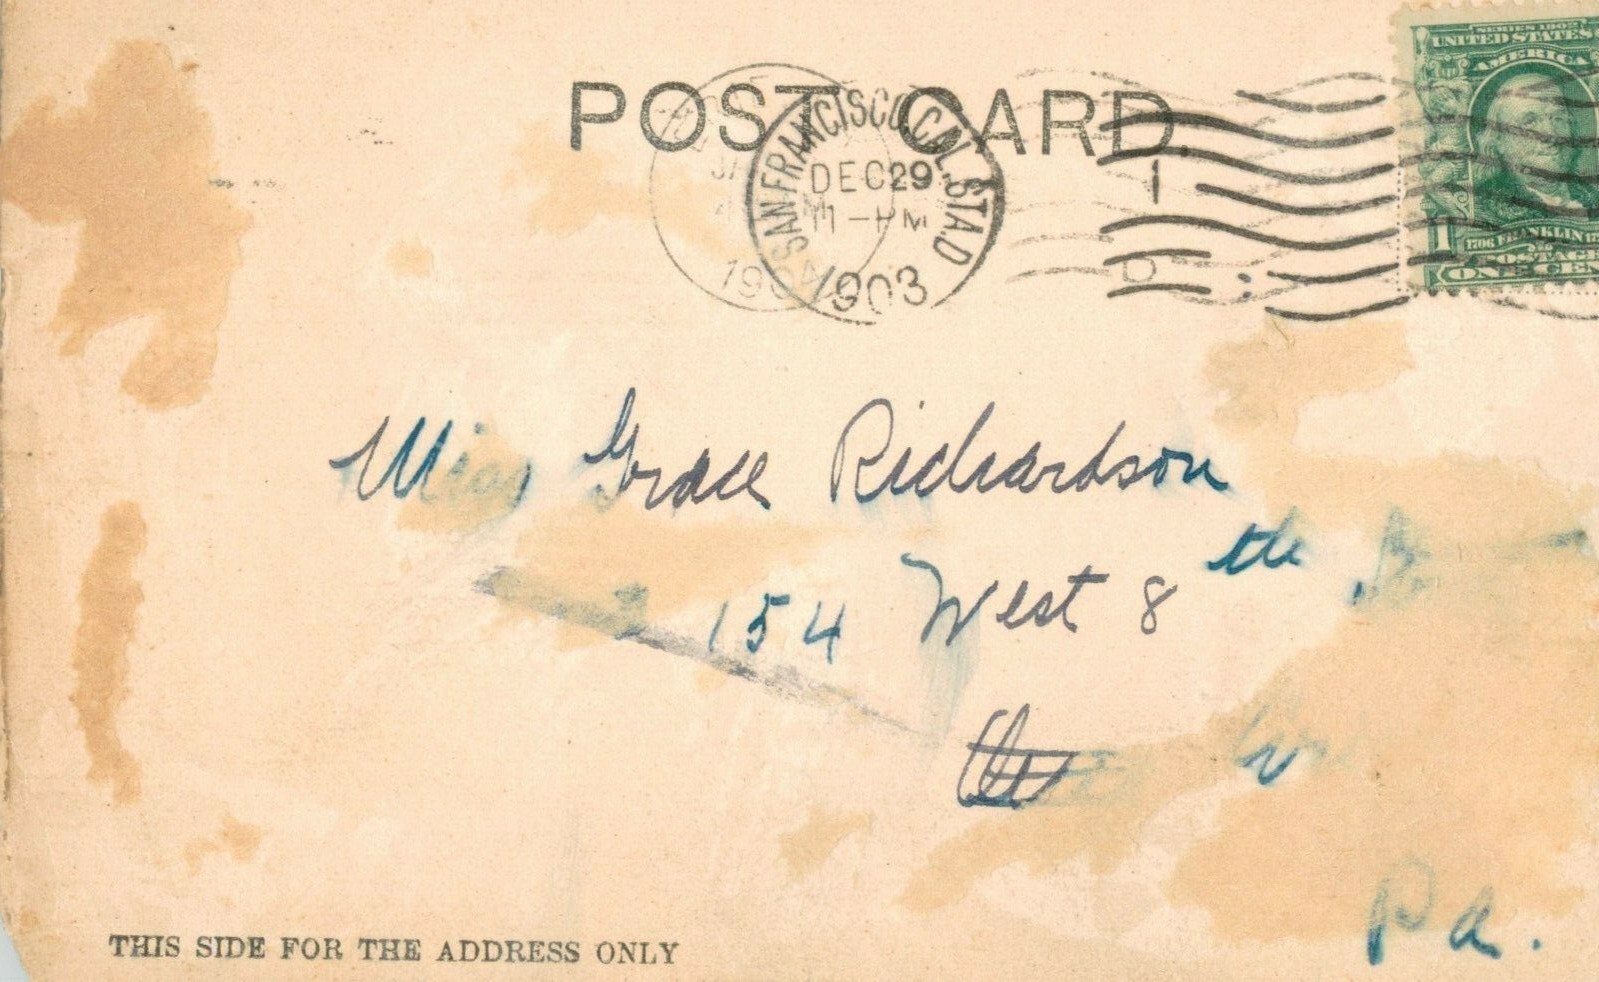 POST CARD.
SAN FRANCISCO, CAL. STA. D
DEC 29
11-PM
1903
1904
1
D
SERIES 1902
UNITED STATES
AMERICA
1706 FRANKLIN
POSTAGE
1 ONE CEN
Miss Grace Richardson
154 West 8th
Pa.
THIS SIDE FOR THE ADDRESS ONLY